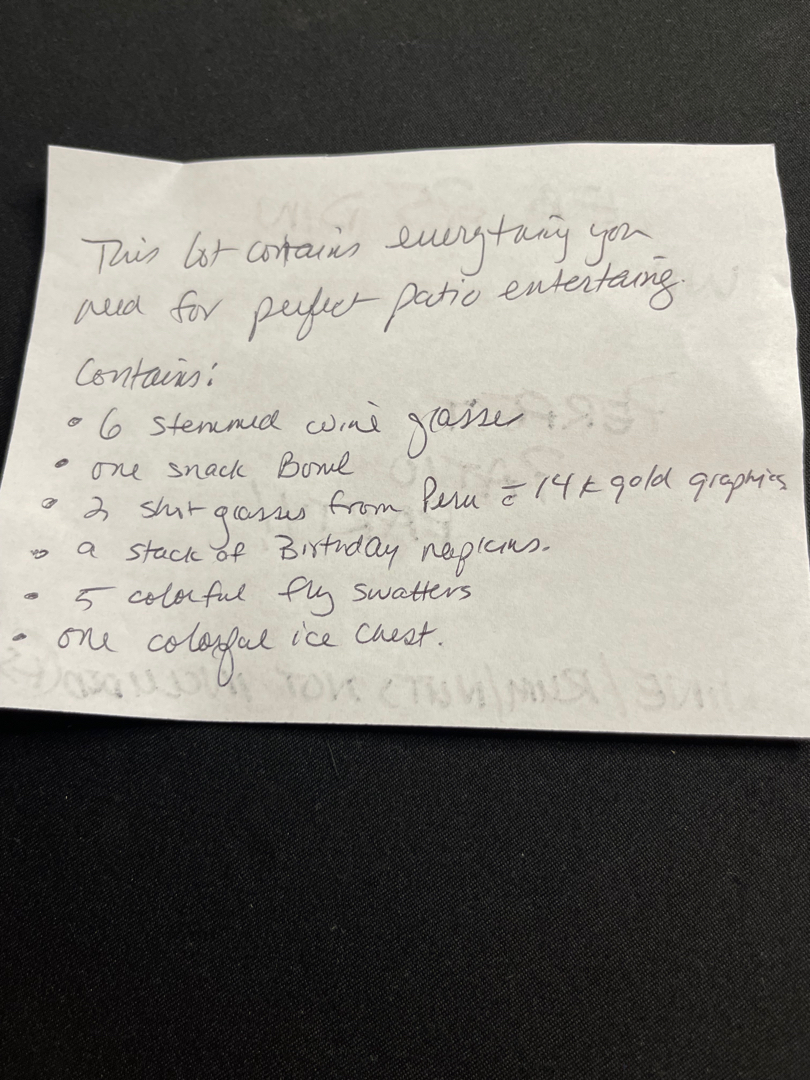 This lot contains everytaing you
need for perfect patio entertaing.
Contains:
• 6 stemmed wine glasses
• one snack Bowl
• 2 shot glasses from Peru c̄ 14k gold graphics
• a stack of Birthday napkins.
• 5 colorful fly swatters
• one colorful ice chest.